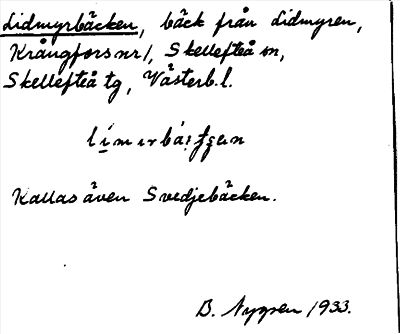 Lidmyrbäcken, bäck från Lidmyren,
Krångfors nr 1, Skellefteå sn,
Skellefteå tg, Västerb. l.
Kallas även Svedjebäcken.
B. Nygren 1933.